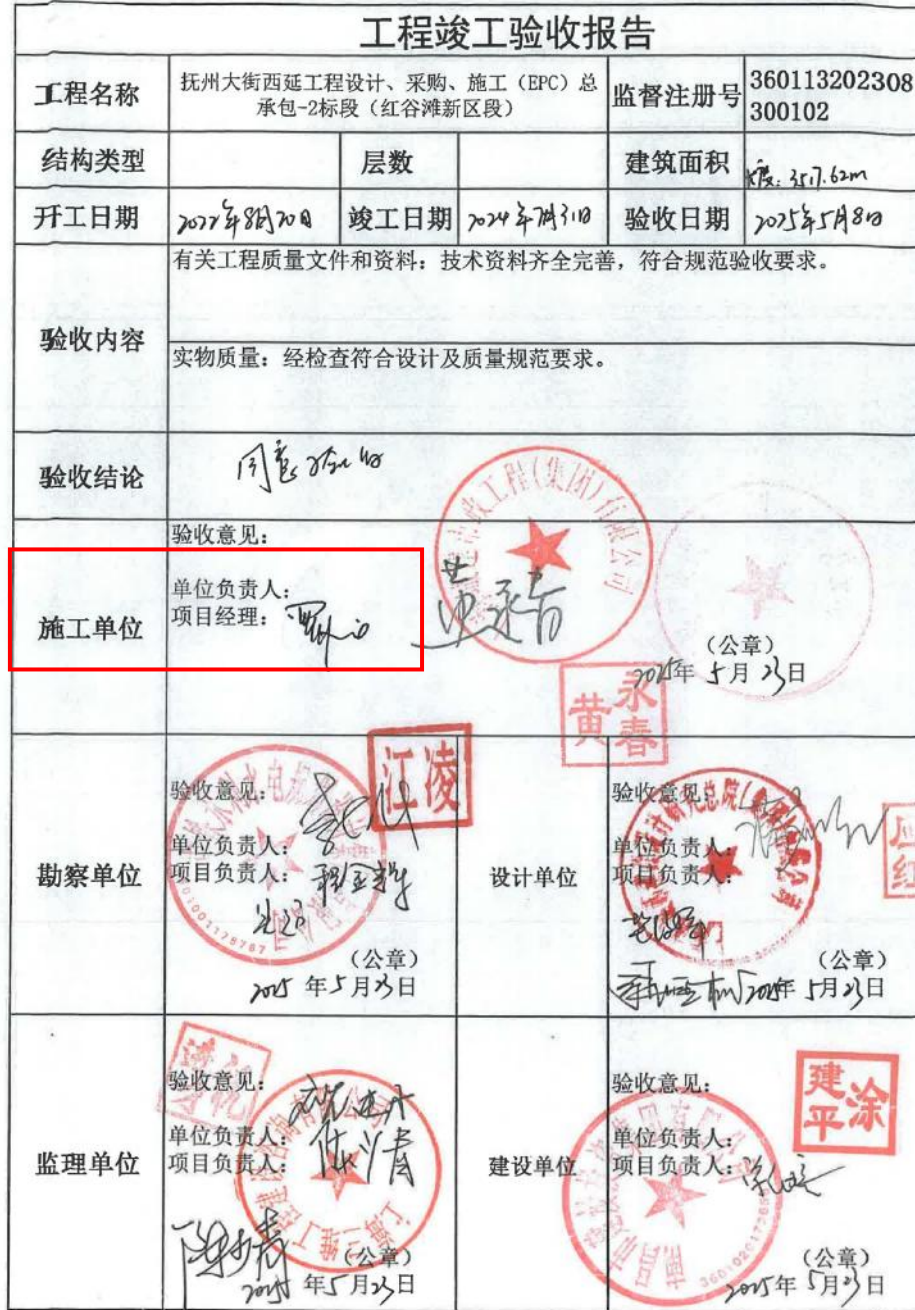 工程竣工验收报告
工程名称
抚州大街西延工程设计、采购、施工（EPC）总
承包-2标段（红谷滩新区段）
监督注册号
360113202308
300102
结构类型
层数
建筑面积
长度: 3517.62m
开工日期
2022年8月20日
竣工日期
2024年7月31日
验收日期
2025年5月8日
验收内容
有关工程质量文件和资料：技术资料齐全完善，符合规范验收要求。
实物质量：经检查符合设计及质量规范要求。
验收结论
同意验收
施工单位
验收意见：
单位负责人：
项目经理：
市政工程(集团)有限公司
（公章）
2025年 5月 23日
黄永春
勘察单位
验收意见：
单位负责人：
项目负责人：
江凌
（公章）
2025 年5月23日
设计单位
验收意见：
单位负责人：
项目负责人：
（公章）
2025年 5月23日
监理单位
验收意见：
单位负责人：
项目负责人：
（公章）
2025 年5月23日
建设单位
验收意见：
单位负责人：
项目负责人：
涂建平
（公章）
2025年 5月23日